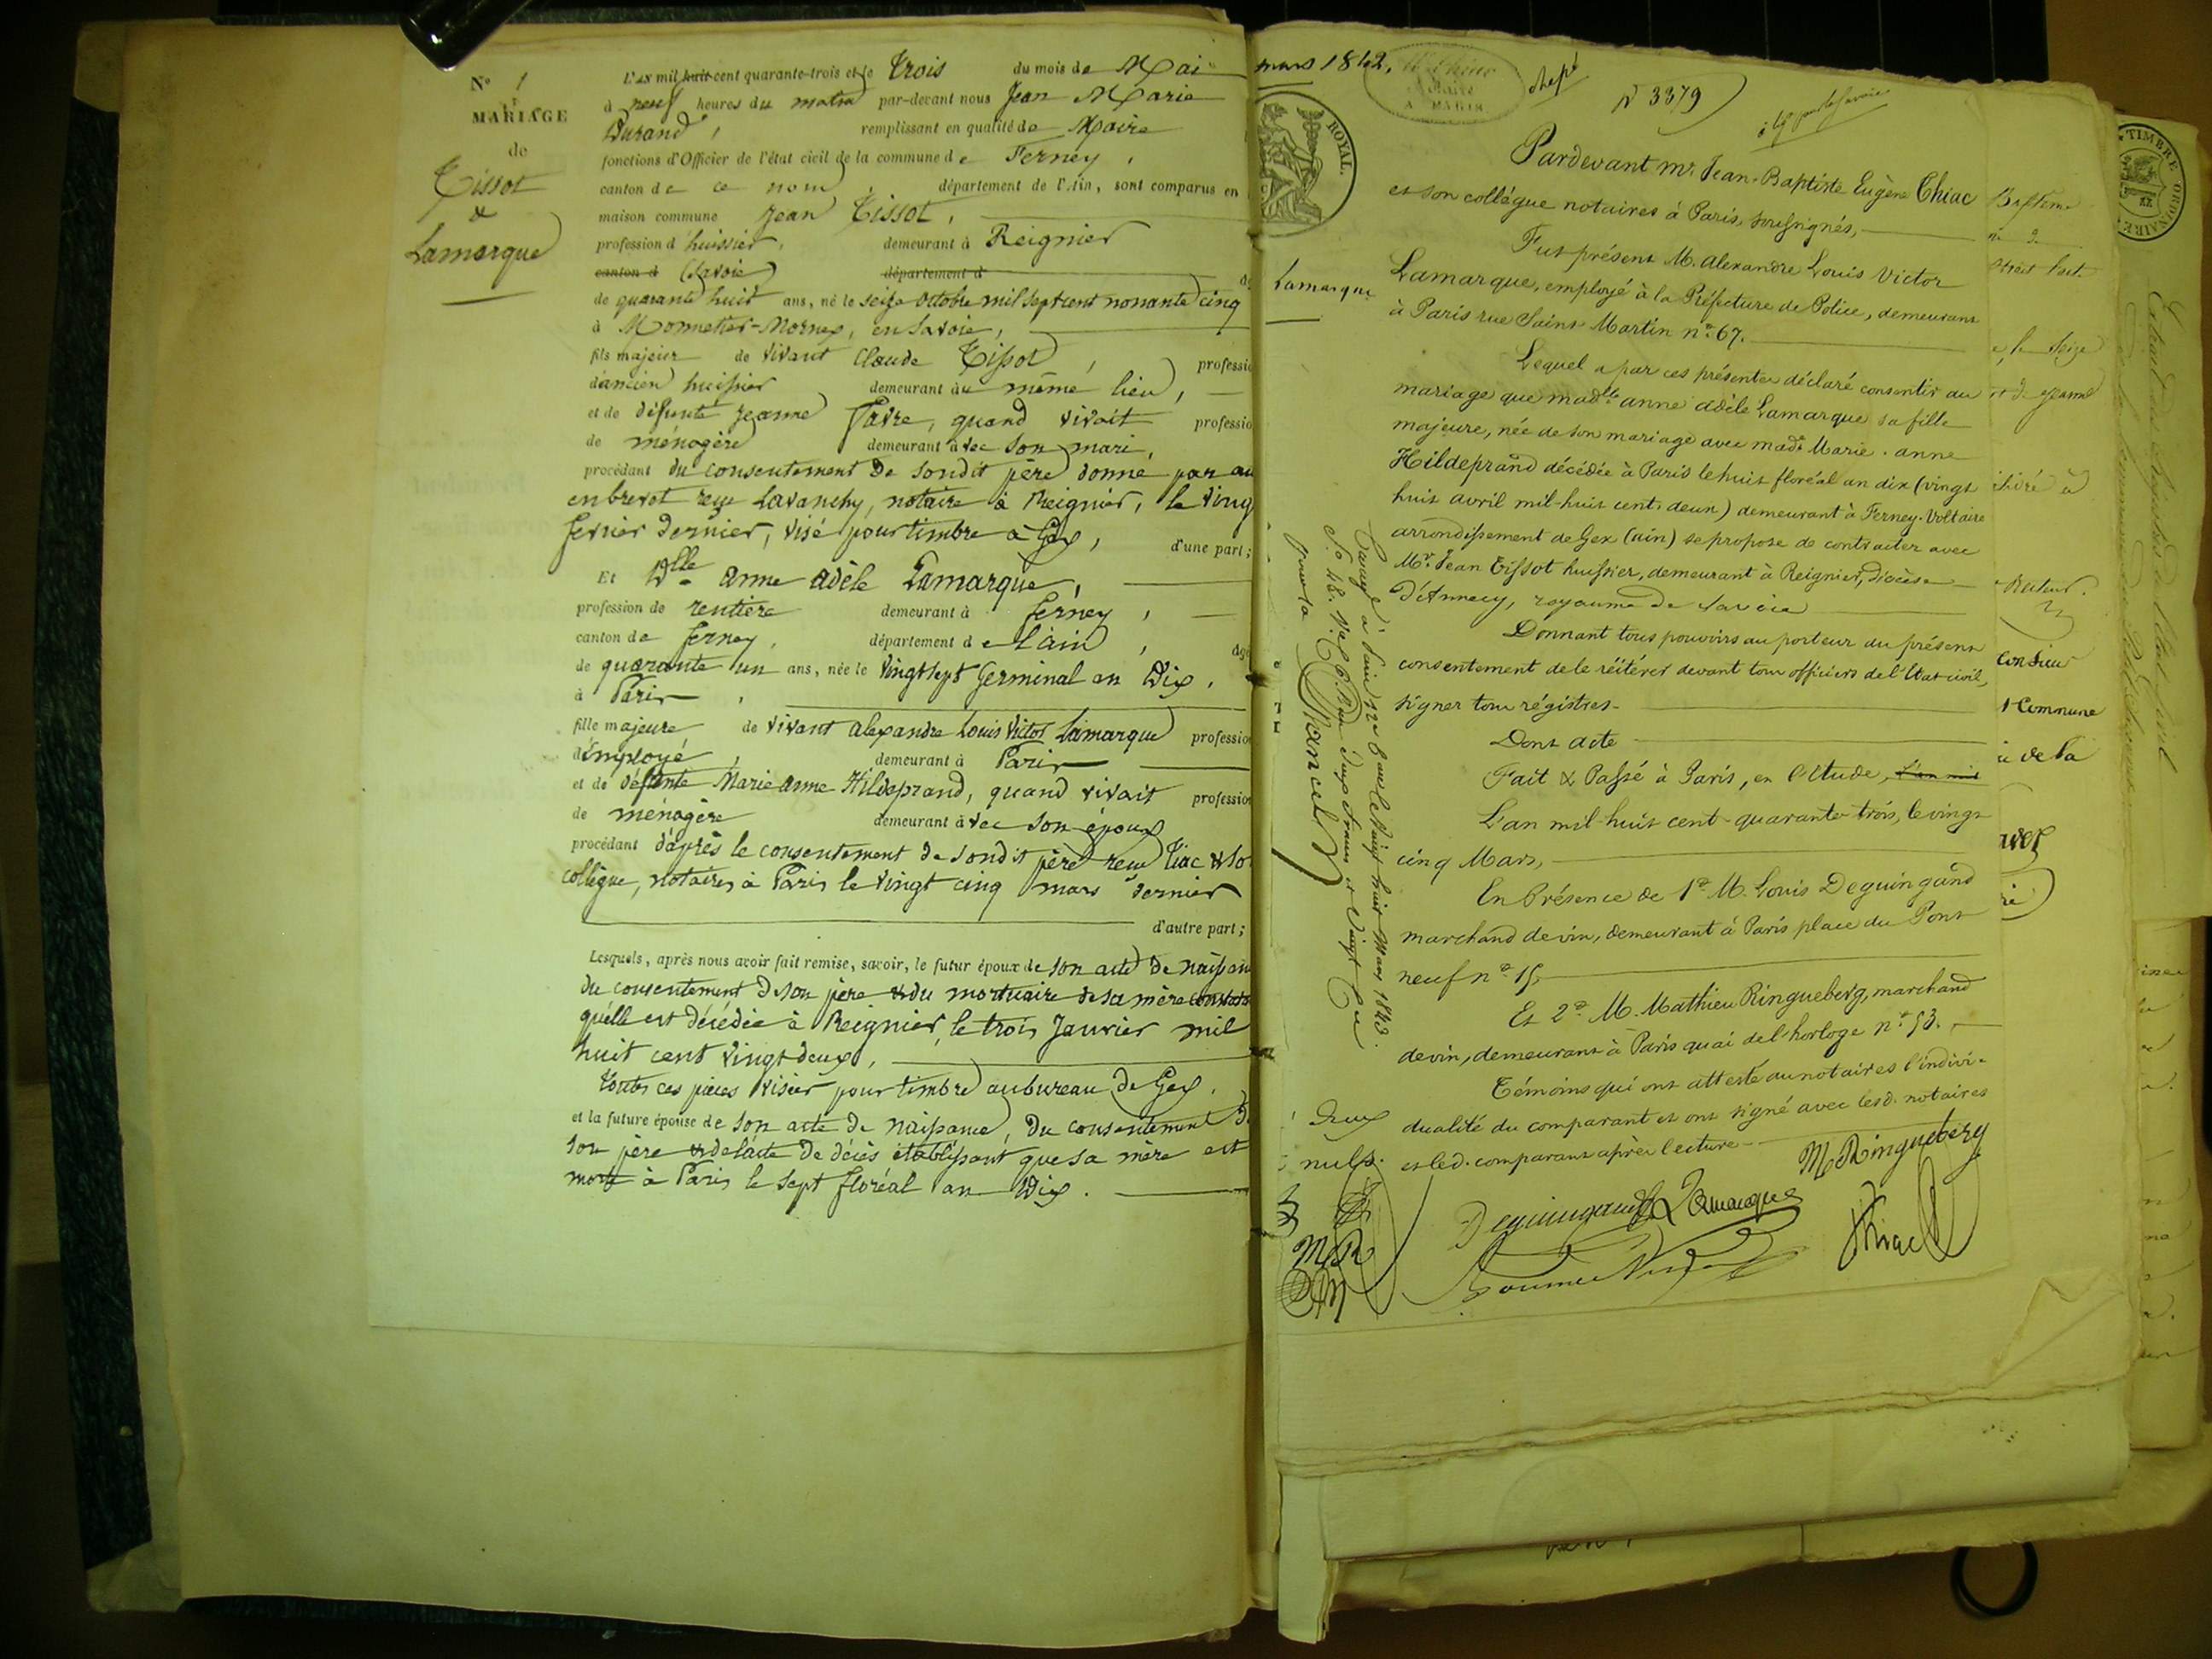 N° 1
MARIAGE
de
Tissot
&
Lamarque
L'AN mil huit cent quarante-trois et le trois du mois de Mai
à neuf heures du matin par-devant nous Jean Marie
Durand, remplissant en qualité de Maire
fonctions d'Officier de l'état civil de la commune de Ferney,
canton de ce nom, département de l'Ain, sont comparus en
maison commune Jean Tissot,
profession d'huissier, demeurant à Reignier
canton d (Savoie) département d
de quarante huit ans, né le seize octobre mil sept cent nonante cinq
à Monnetier-Mornex, en Savoie,
fils majeur de vivant Claude Tissot, professio
d'ancien huissier demeurant au même lieu,
et de défunte Jeanne Favre, quand vivait professio
de ménagère demeurant avec son mari,
procédant du consentement de sondit père donné par au
en brevet reçu Lavanchy, notaire à Reignier, le vingt
fevrier dernier, visé pour timbre à Gex, d'une part;
Et Dlle anne adèle Lamarque,
profession de rentière demeurant à ferney,
canton de ferney, département de l'ain, âgé
de quarante un ans, née le vingt sept Germinal an Dix,
à Paris,
fille majeure de vivant alexandre Louis Victor Lamarque professio
d'employé, demeurant à Paris
et de défunte Marie anne Hildeprand, quand vivait professio
de ménagère demeurant avec son époux
procédant d'après le consentement de sondit père reçu Tiac & so
collègue, notaires à Paris le vingt cinq mars dernier
d'autre part;
Lesquels, après nous avoir fait remise, savoir, le futur époux de son acte de naissan
du consentement de son père & du mortuaire de sa mère constata
qu'elle est décédée à Reignier, le trois Janvier mil
huit cent vingt deux,
toutes ces pièces visées pour timbre au bureau de Gex.
et la future épouse de son acte de naissance, du consentement de
son père & de l'acte de décès établissant que sa mère est
morte à Paris le sept floréal an Dix.
mars 1842.
ROYAL.
A PARIS.
N° 3379
Lamarque
Pardevant Mr Jean-Baptiste Eugène Thiac
et son collègue notaires à Paris, soussignés,
Fut présent M. Alexandre Louis Victor
Lamarque, employé à la Préfecture de Police, demeurant
à Paris rue Saint Martin n° 67.
Lequel a par ces présentes déclaré consentir au
mariage que madlle anne adèle Lamarque sa fille
majeure, née de son mariage avec made Marie-anne
Hildeprand décédée à Paris le huit floréal an dix (vingt
huit avril mil-huit cent-deux) demeurant à Ferney-Voltaire
arrondissement de Gex (ain) se propose de contracter avec
Mr Jean Tissot huissier, demeurant à Reignier, diocèse
d'Annecy, royaume de Savoie
Donnant tous pouvoirs au porteur du présent
consentement de le réitérer devant tous officiers de l'Etat civil,
signer tous régistres.
Dont acte
Fait & Passé à Paris, en l'Etude, l'an mil
L'an mil-huit cent-quarante-trois, le vingt
cinq Mars,
En Présence de 1° M. Louis Deguingand
marchand de vin, demeurant à Paris place du Pont
neuf n° 15,
Et 2° M. Mathieu Ringueberg, marchand
de vin, demeurant à Paris quai de l'horloge n° 53.
Témoins qui ont attesté au notaires l'indivi-
dualité du comparant et ont signé avec lesd. notaires
et led. comparant après lecture
nuls.
M Ringueberg
Deguingand Lamarque
Thiac
MR
TIMBRE ORDINAIRE
le Seize
Commune
de la